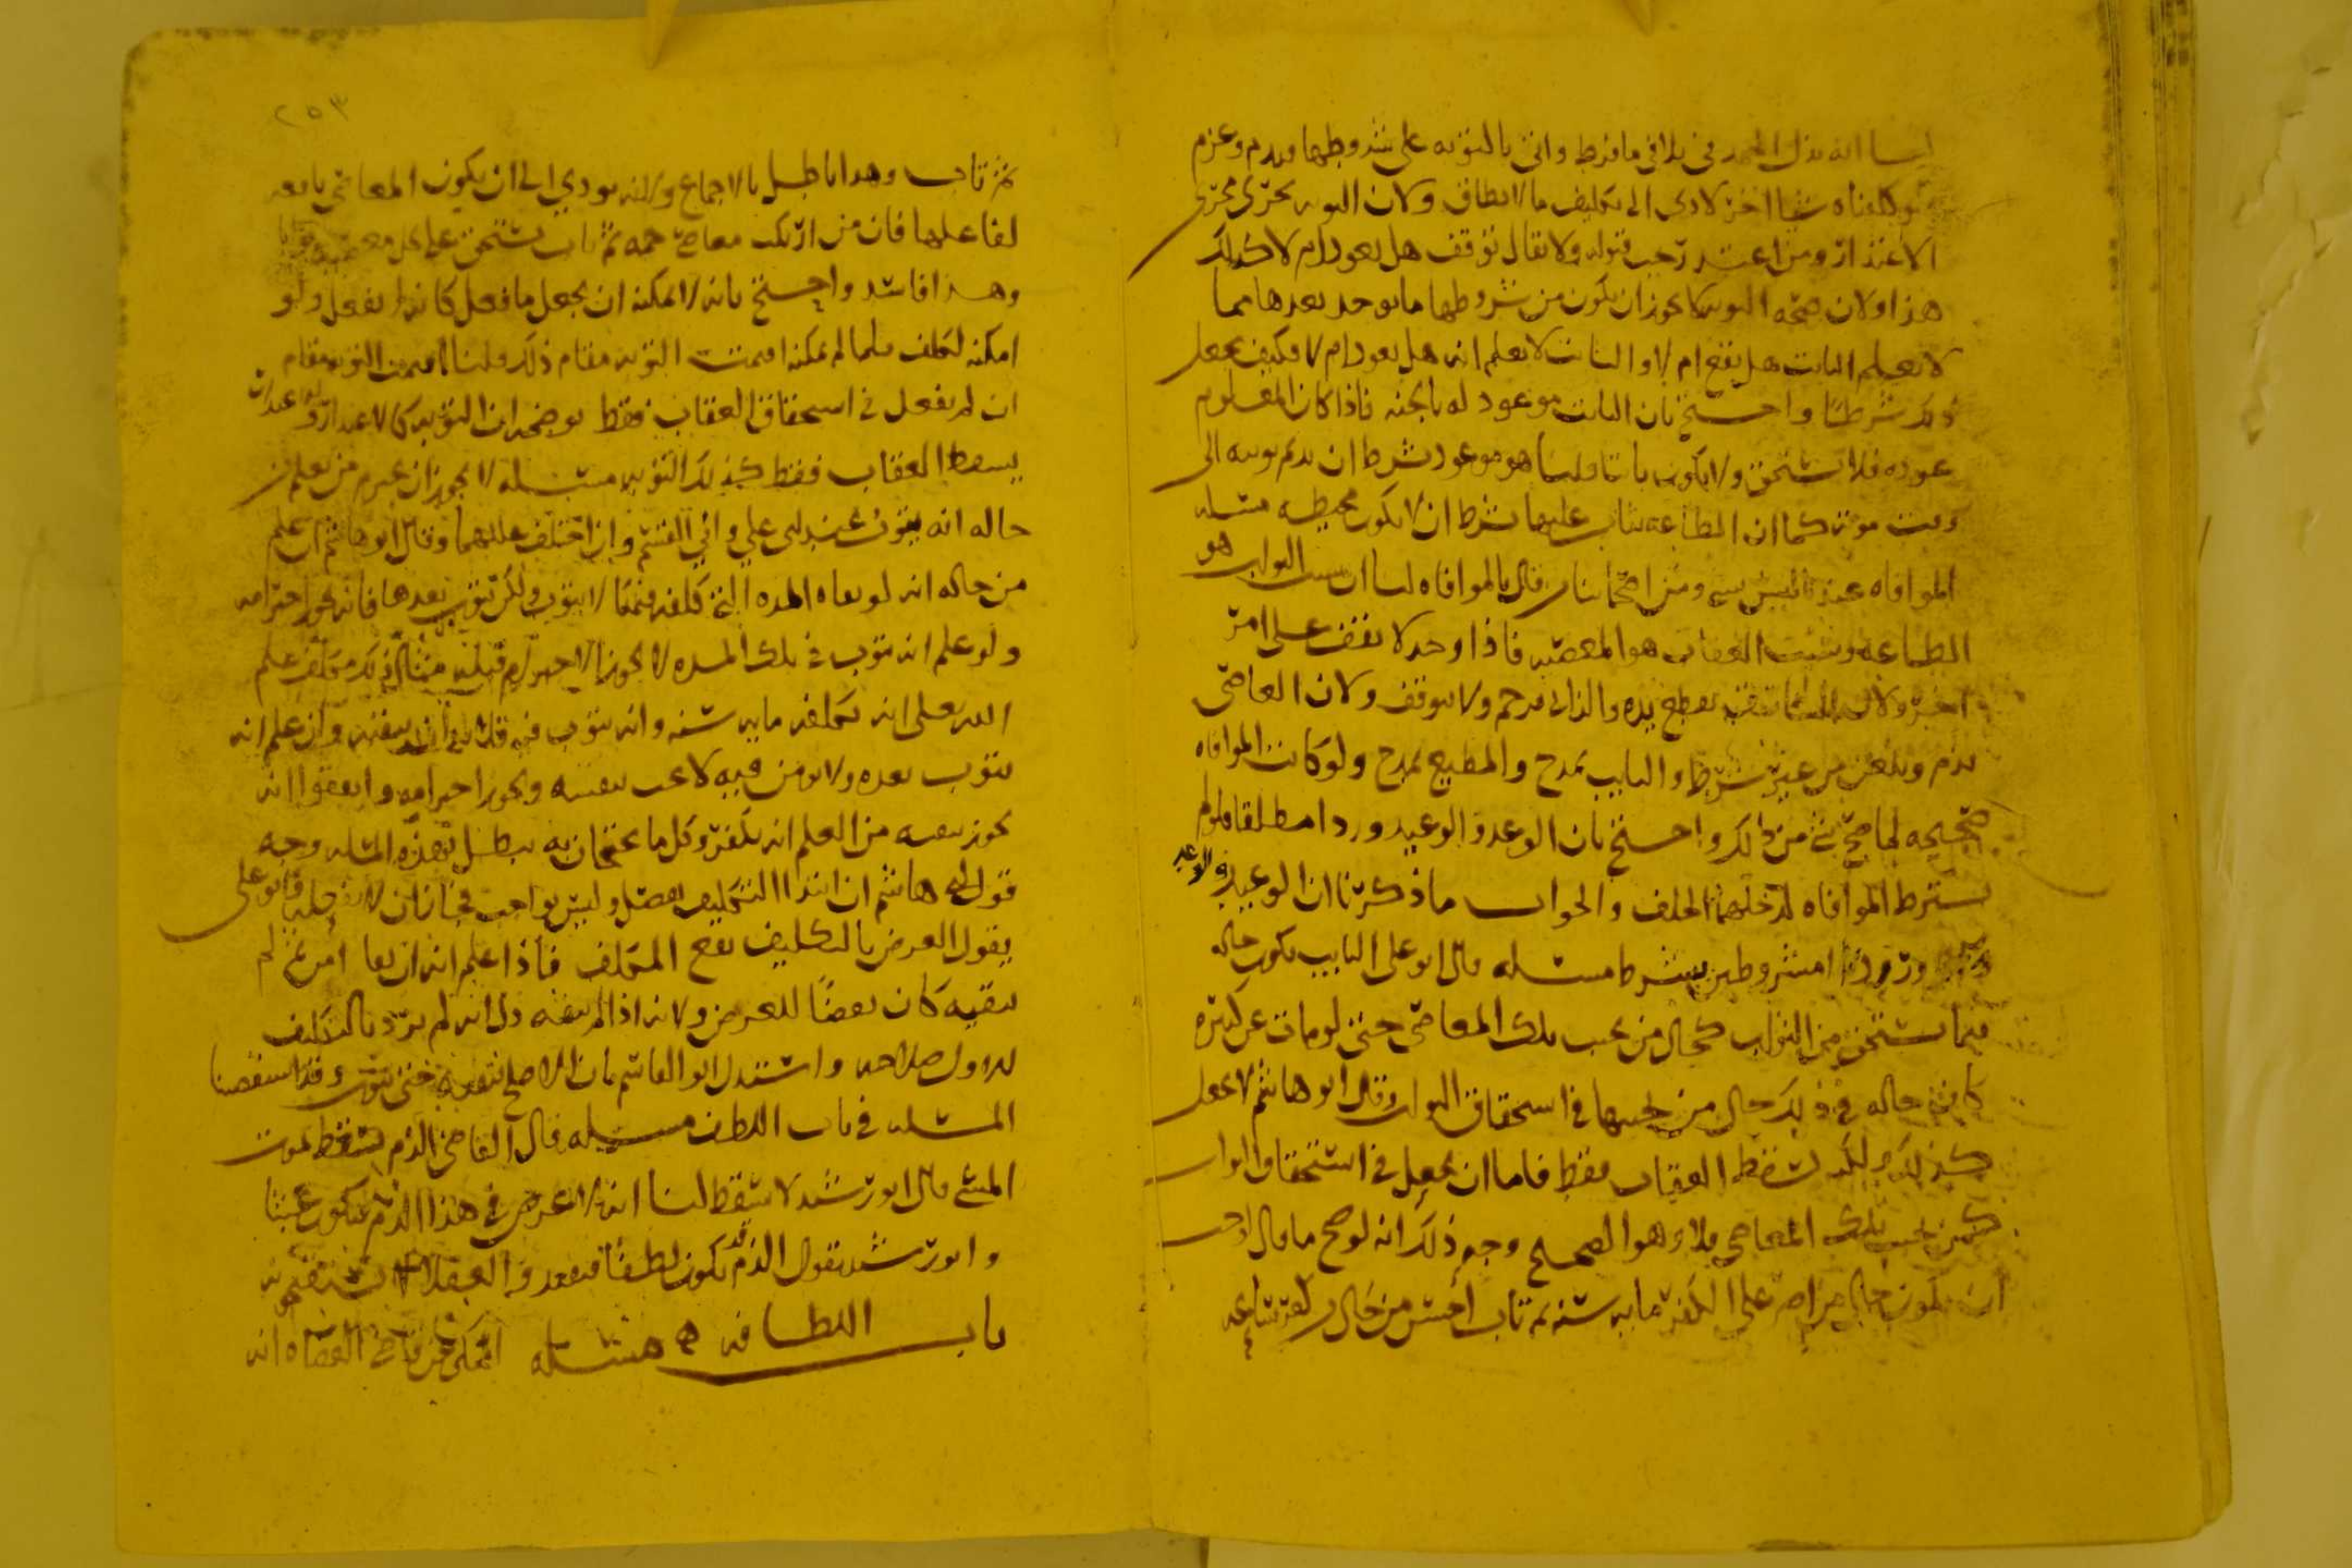 لنا انه بذل المجهد في تلافي ما فرط واتى بالتوبه على شروطها وندم وعزم
ولو كلفناه شيا اخر لادى الى تكليف ما لا يطاق ولان التوبه تجري مجرى
الاعتذار ومن اعتذر يجب قبوله ولا يقال توقف هل يعود ام لا كذلك
هذا ولان صحه التوبه لا يجوز ان يكون من شروطها ما يوجد بعدها مما
لا يعلم التائب هل يقع ام لا والتائب لا يعلم انه هل يعود ام لا فكيف يجعل
ذلك شرطا واحتج بان التائب موعود له بالجنه فاذا كان المعلوم
عوده فلا يستحق ولا يكون تائبا قلنا هو موعود بشرط ان يديم توبته الى
وقت موته كما ان الطاعه يثاب عليها بشرط ان لا يكون محبطه مسئله
الموافاه عندنا ليس بشي ومن اصحابنا من قال بالموافاه لنا ان سبب الثواب هو
الطاعه وسبب العقاب هو المعصيه فاذا وجد لا يقف على امر
اخر ولان السارق يقطع يده والزاني يرجم ولا يتوقف ولان العاصي
يذم ويلعن من غير شرط والتايب يمدح والمطيع يمدح ولو كانت الموافاه
صحيحه لما صح شي من ذلك واحتج بان الوعد والوعيد وردا مطلقا فلو لم
يشترط الموافاه لدخلهما الخلف والجواب ما ذكرنا ان الوعيد والوعد
وردا مشروطين بشرط مسئله قال ابو علي التايب يكون حاله
فيما يستحق من الثواب كحال من يجتنب تلك المعاصي حتى لو مات عن كبيره
كانت حاله في ذلك حال من يجتنبها في استحقاق الثواب وقال ابو هاشم لا يجعل
كذلك ولكنه يسقط العقاب فقط فاما ان يجعل في استحقاق الثواب
كمن يجتنب تلك المعاصي فلا وهو الصحيح وجه ذلك انه لو صح ما قال اوجب
ان يكون حال من اصر على الكفر مايه سنه ثم تاب احسن من حال من كفر ساعه
٢٥٣
ثم تاب وهذا باطل بالاجماع ولانه يودي الى ان يكون المعاصي نافعه
لفاعلها فان من ارتكب معاصي جمه ثم تاب يستحق على كل معصيه ثوابا
وهذا فاسد واحتج بانه لا يمكنه ان يجعل ما فعل كانه لم يفعل ولو
امكنه لكلف فلما لم يمكنه اقيمت التوبه مقام ذلك قلنا اقيمت التوبه مقام
ان لم يفعل في استحقاق العقاب فقط يوضحه ان التوبه كالاعتذار والاعتذار
يسقط العقاب فقط كذلك التوبه مسئله لا يجوز ان يخترم من يعلم من
حاله انه يتوب عند ابي علي وابي القسم وان اختلف علتهما وقال ابو هاشم ان علم
من حاله انه لو بقاه المده التي كلفه فيها لا يتوب ولكن يتوب بعدها فانه يجوز اخترامه
ولو علم انه يتوب في تلك المده لا يجوز الاخترام قبله مثال ذلك مكلف علم
الله تعالى انه يكلفه مايه سنه وانه يتوب فيه فلا بد ان يبقيه وان علم انه
يتوب بعده ولا يومن فيه لا يجب تبقيته ويجوز اخترامه واتفقوا انه
يجوز تبقيه من العلم انه يكفر وكل ما يحتجان به يبطل بهذه المسله وجه
قول ابي هاشم ان ابتدا التكليف تفضل وليس بواجب فجاز ان لا يفعله وابو علي
يقول الغرض بالتكليف نفع المكلف فاذا علم انه ان بقا امن ثم لم
يبقيه كان نقضا للغرض ولانه اذا لم يبقه دل انه لم يرد بالتكليف
الاول صلاحه واستدل ابو القاسم بان الاصلح تبقيته حتى يتوب وقد استقصينا
المسئله في باب اللطف مسئله قال القاضي الذم يسقط بموت
المسئ وقال ابو رشيد لا يسقط لنا انه لا غرض في هذا الذم فيكون عبثا
وابو رشيد يقول الذم قد يكون لطفا فيفعله والعقلا يستقبحونه
باب اللطافه مسئله الحكى عن قاضي القضاه انه